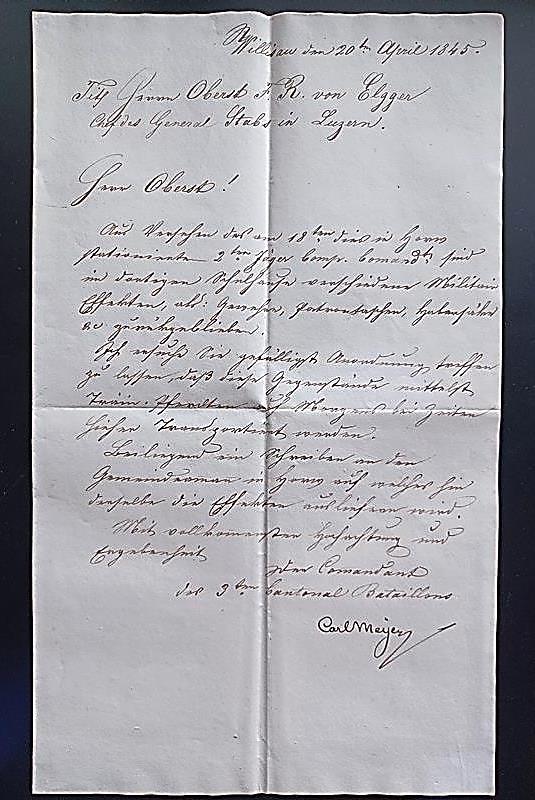 Willisau den 20ten April 1845.
Titl Herrn Oberst F. R. von Elgger
Chef des General Stabs in Luzern.
Herr Oberst!
Aus Versehen des am 18ten dies in Horw
stationierte 2ten Jäger Comp. Comandts sind
im dortigen Schulhause verschiedene Militair
Effekten, als: Gewehre, Patrontaschen, Habersäke
&c zurükgeblieben.
Ich ersuche Sie gefälligst Anordnung treffen
zu lassen, daß diese Gegenstände mittelst
Train-Pferdten auf Morgens bei Zeiten
hieher Transportiert werden.
Beiliegend ein Schreiben an den
Gemeindeaman in Horw auf welches hin
derselbe die Effekten ausliefern wird.
Mit vollkomenster Hochachtung und
Ergebenheit
Der Comandant
des 3ten Cantonal Bataillons
Carl Meyer